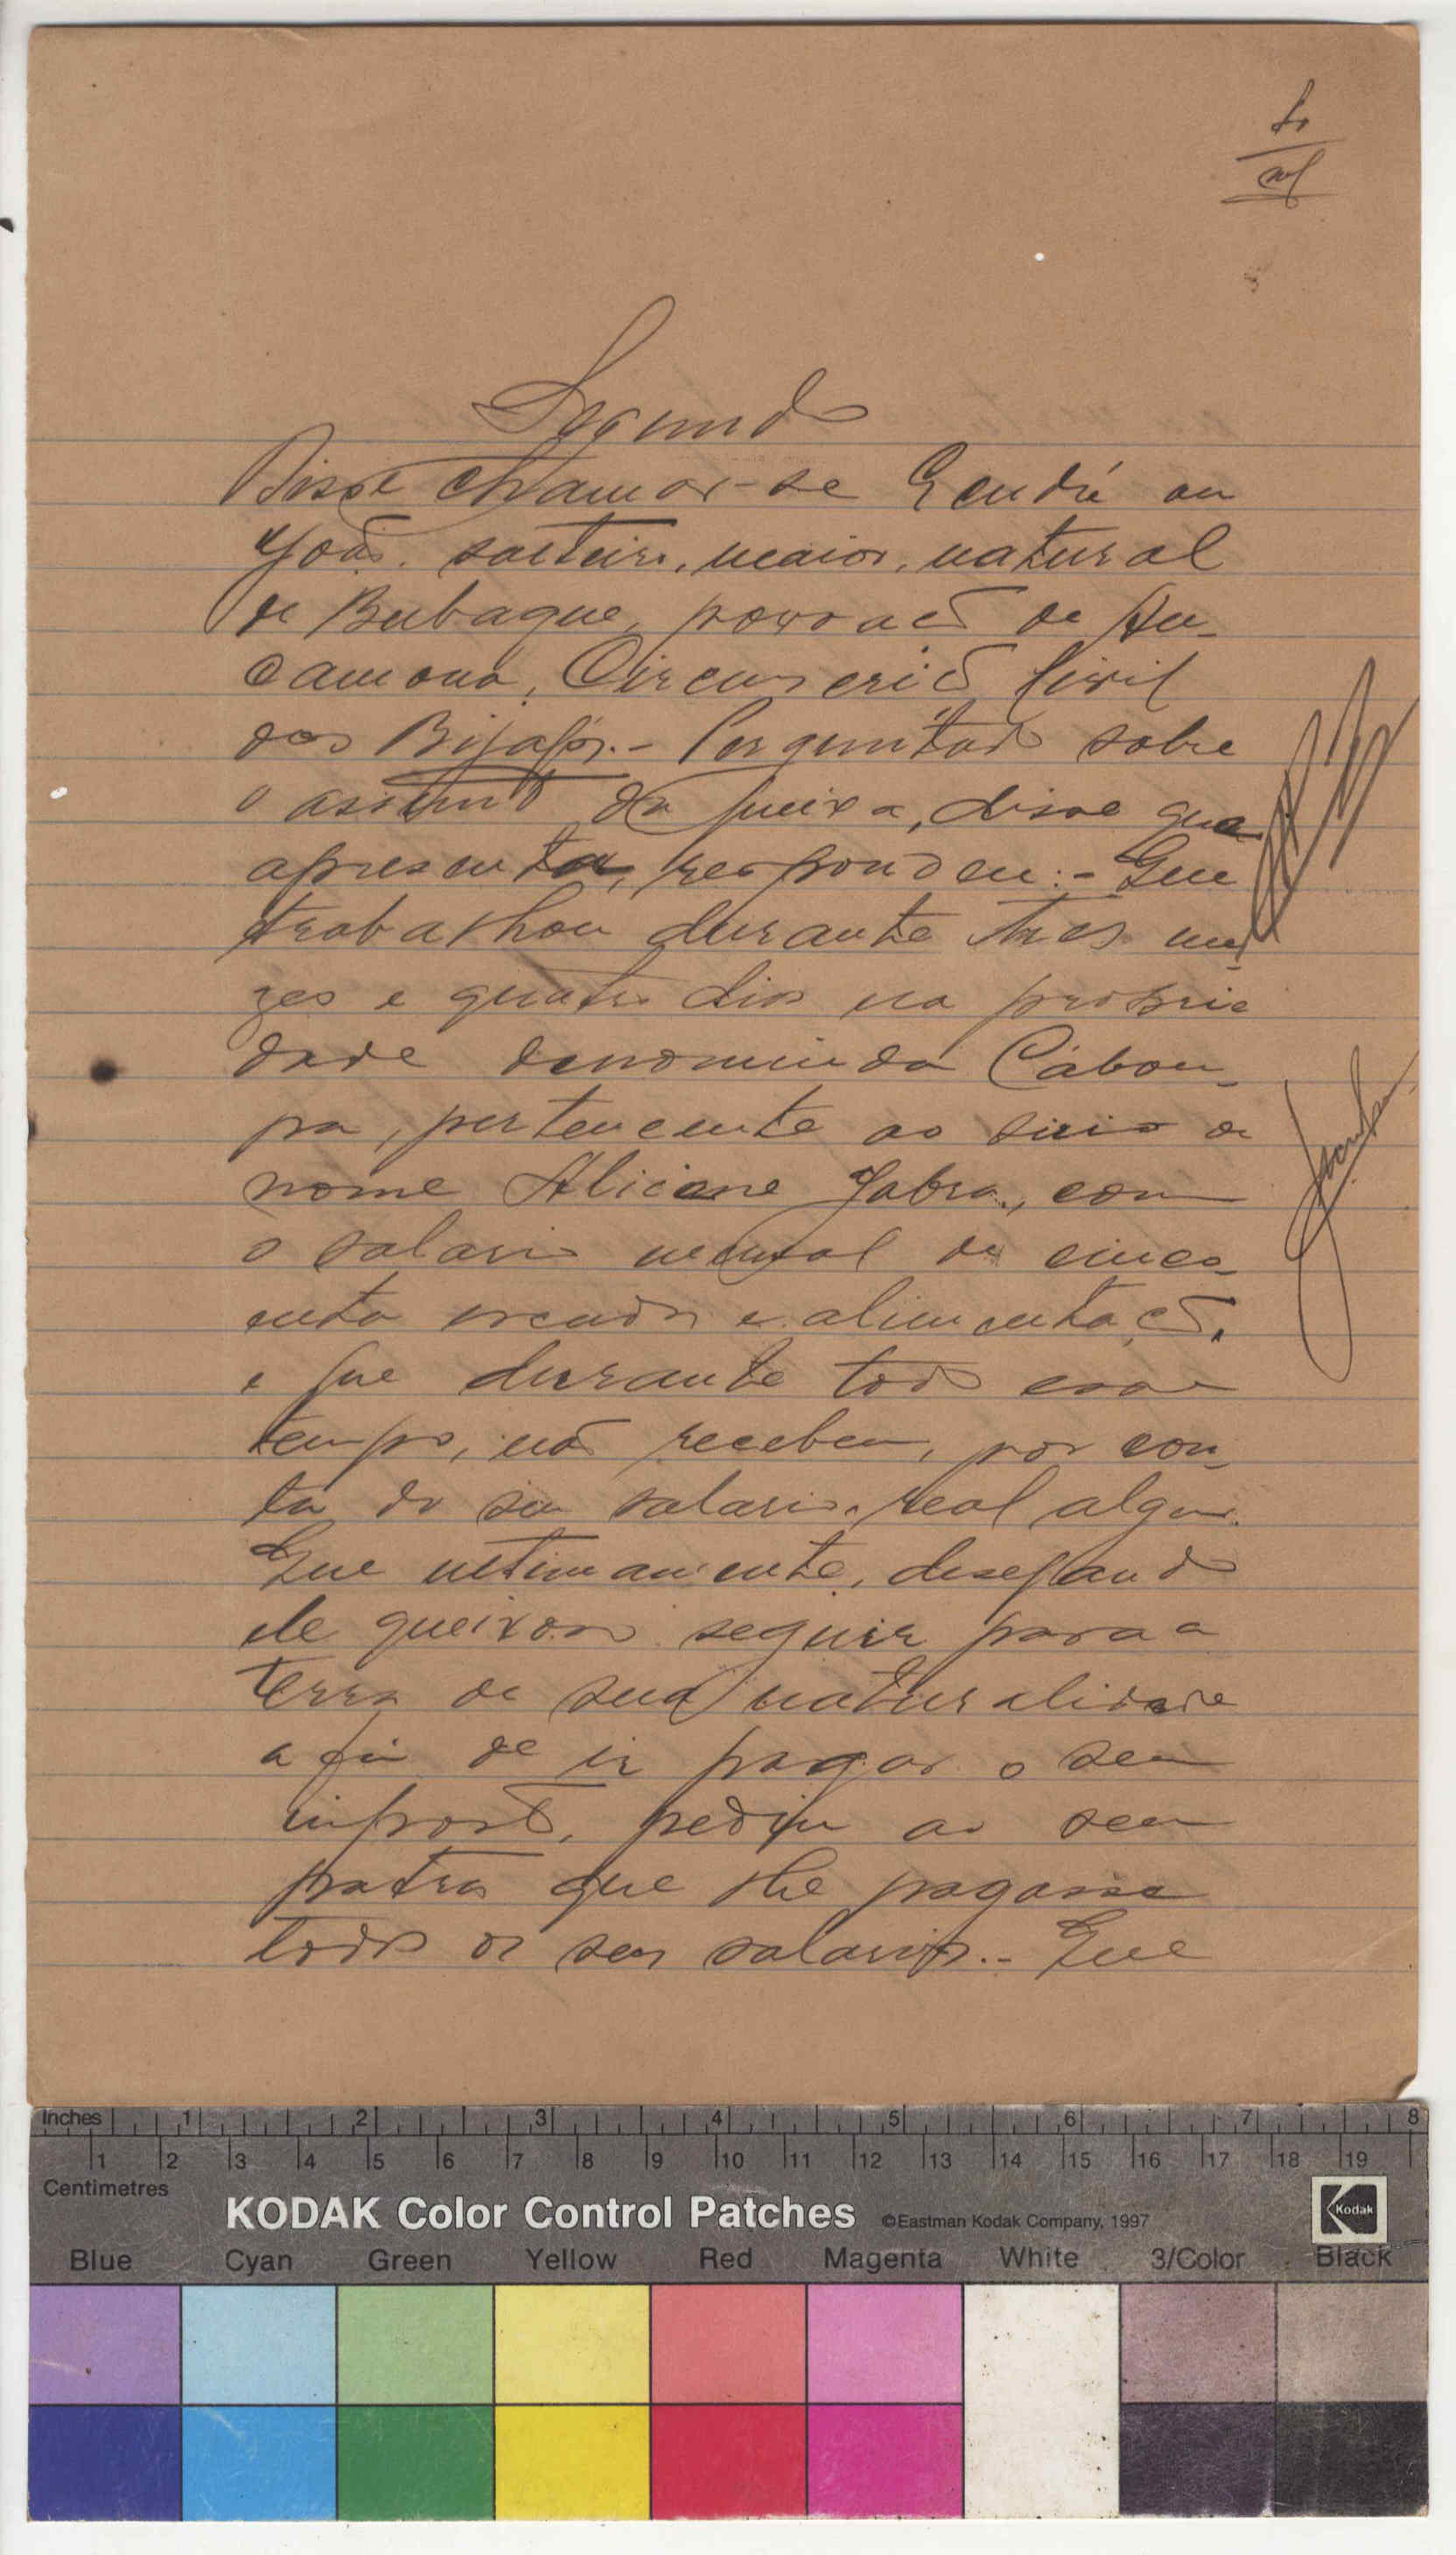 Segundo
Disse chamar-se Gendié ou
João. solteiro, maior, natural
de Bubaque, povoacão de An-
camona, Circunscricão Civil
dos Bijagós.- Perguntado sobre
o assunto da queixa, disse que
apresenta, respondeu:- Que
trabalhou durante tres me-
zes e quatro dias na proprie
dade denominada Cabou-
pa, pertencente ao sirio de
nome Aliciane Jabra, com
o salario mensal de cinco-
enta escudos e alimentacão,
e que durante todo esse
tempo, não recebeu, por con-
ta do seu salario, real algum.
Que ultimamente, desejando
ele queixoso seguir para a
terra de sua naturalidade
a fim de ir pagar o seu
imposto, pediu ao seu
patrão que lhe pagasse
todos os seus salarios.- Que
Inches 1 2 3 4 5 6 7 8
1 2 3 4 5 6 7 8 9 10 11 12 13 14 15 16 17 18 19
Centimetres
KODAK Color Control Patches ©Eastman Kodak Company, 1997 Kodak
Blue Cyan Green Yellow Red Magenta White 3/Color Black